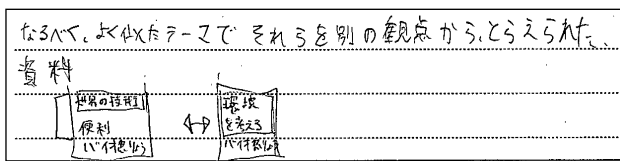 なるべく、よく似たテーマで それらを別の観点から、とらえられた、
資料
世界の技術
便利
バイオ燃りょう
↔
環境
を考える
バイオ燃りょう